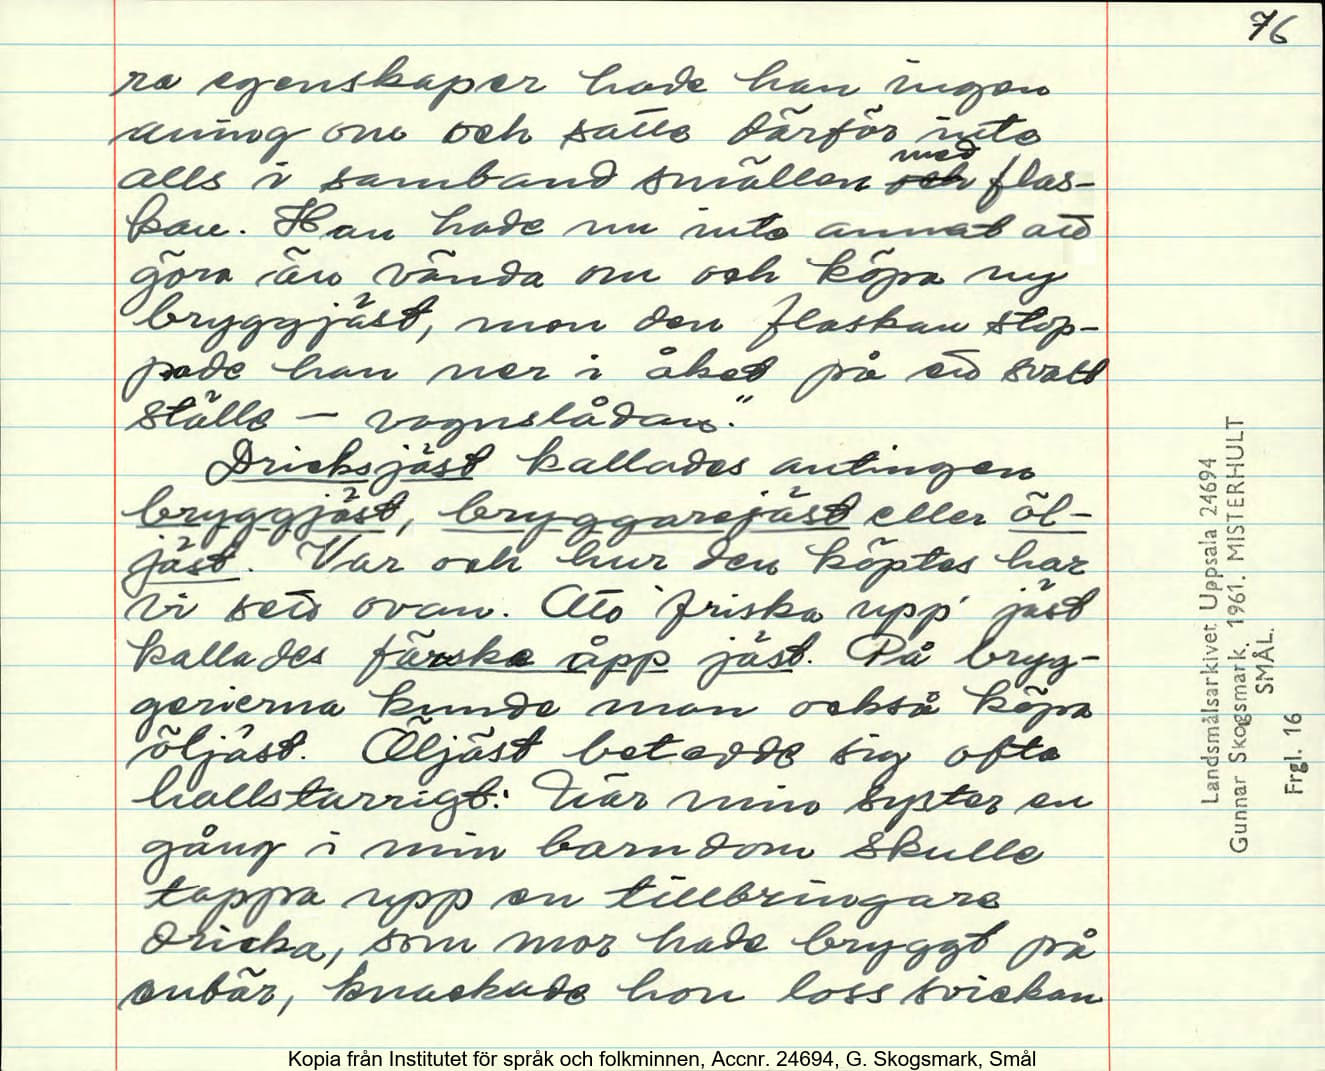 76
ra egenskaper hade han ingen
aning om och satte därför inte
alls i samband smällen med flas-
kan. Han hade nu inte annat att
göra än vända om och köpa ny
bryggjäst, men den flaskan stop-
pade han ner i åket på ett svalt
ställe – vagnslådan."
Dricksjäst kallades antingen
bryggjäst, bryggarejäst eller öl-
jäst. Var och hur den köptes har
vi sett ovan. Att 'friska upp' jäst
kallades färska åpp jäst. På bryg-
gerierna kunde man också köpa
öljäst. Öljäst betedde sig ofta
hallstarrigt: När min syster en
gång i min barndom skulle
tappa upp en tillbringare
dricka, som mor hade bryggt på
enbär, knackade hon loss svickan
Landsmålsarkivet Uppsala 24694
Gunnar Skogsmark. 1961. MISTERHULT
SMÅL.
Frgl. 16
Kopia från Institutet för språk och folkminnen, Accnr. 24694, G. Skogsmark, Smål